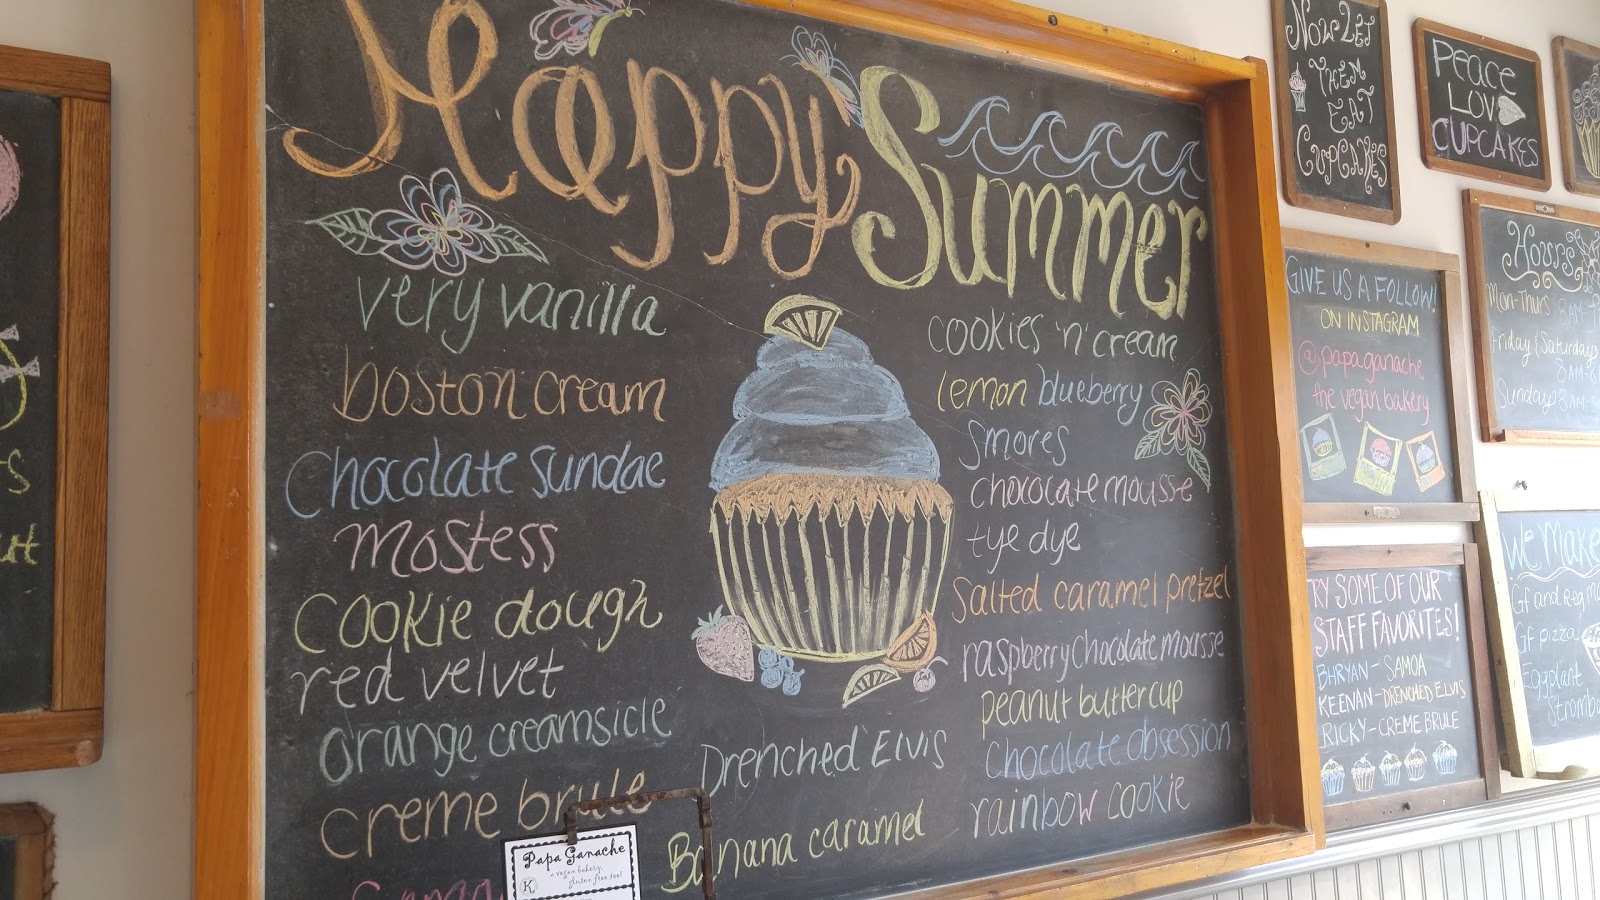 Happy Summer
very vanilla
boston cream
Chocolate Sundae
Mostess
Cookie dough
red velvet
orange creamsicle
creme brule
Drenched Elvis
Banana caramel
cookies 'n' cream
lemon blueberry
Smores
chococate mousse
tye dye
Salted caramel pretzel
raspberry Chocolate mousse
peanut butter cup
Chocolate obsession
rainbow cookie
Papa Ganache
a vegan bakery
gluten free too!
K
Now Let
Them
Eat
Cupcakes
Peace
Love
Cupcakes
Give us a follow!
on Instagram
@papaganache
the vegan bakery
Hours
Mon-Thurs 8AM-
Friday & Saturday
8AM-
Sunday 8AM-
Try some of our
staff favorites!
Bhryan - Samoa
Keenan - Drenched Elvis
Ricky - Creme Brule
We Make
GF and Reg
GF pizza
Eggplant
Strombo